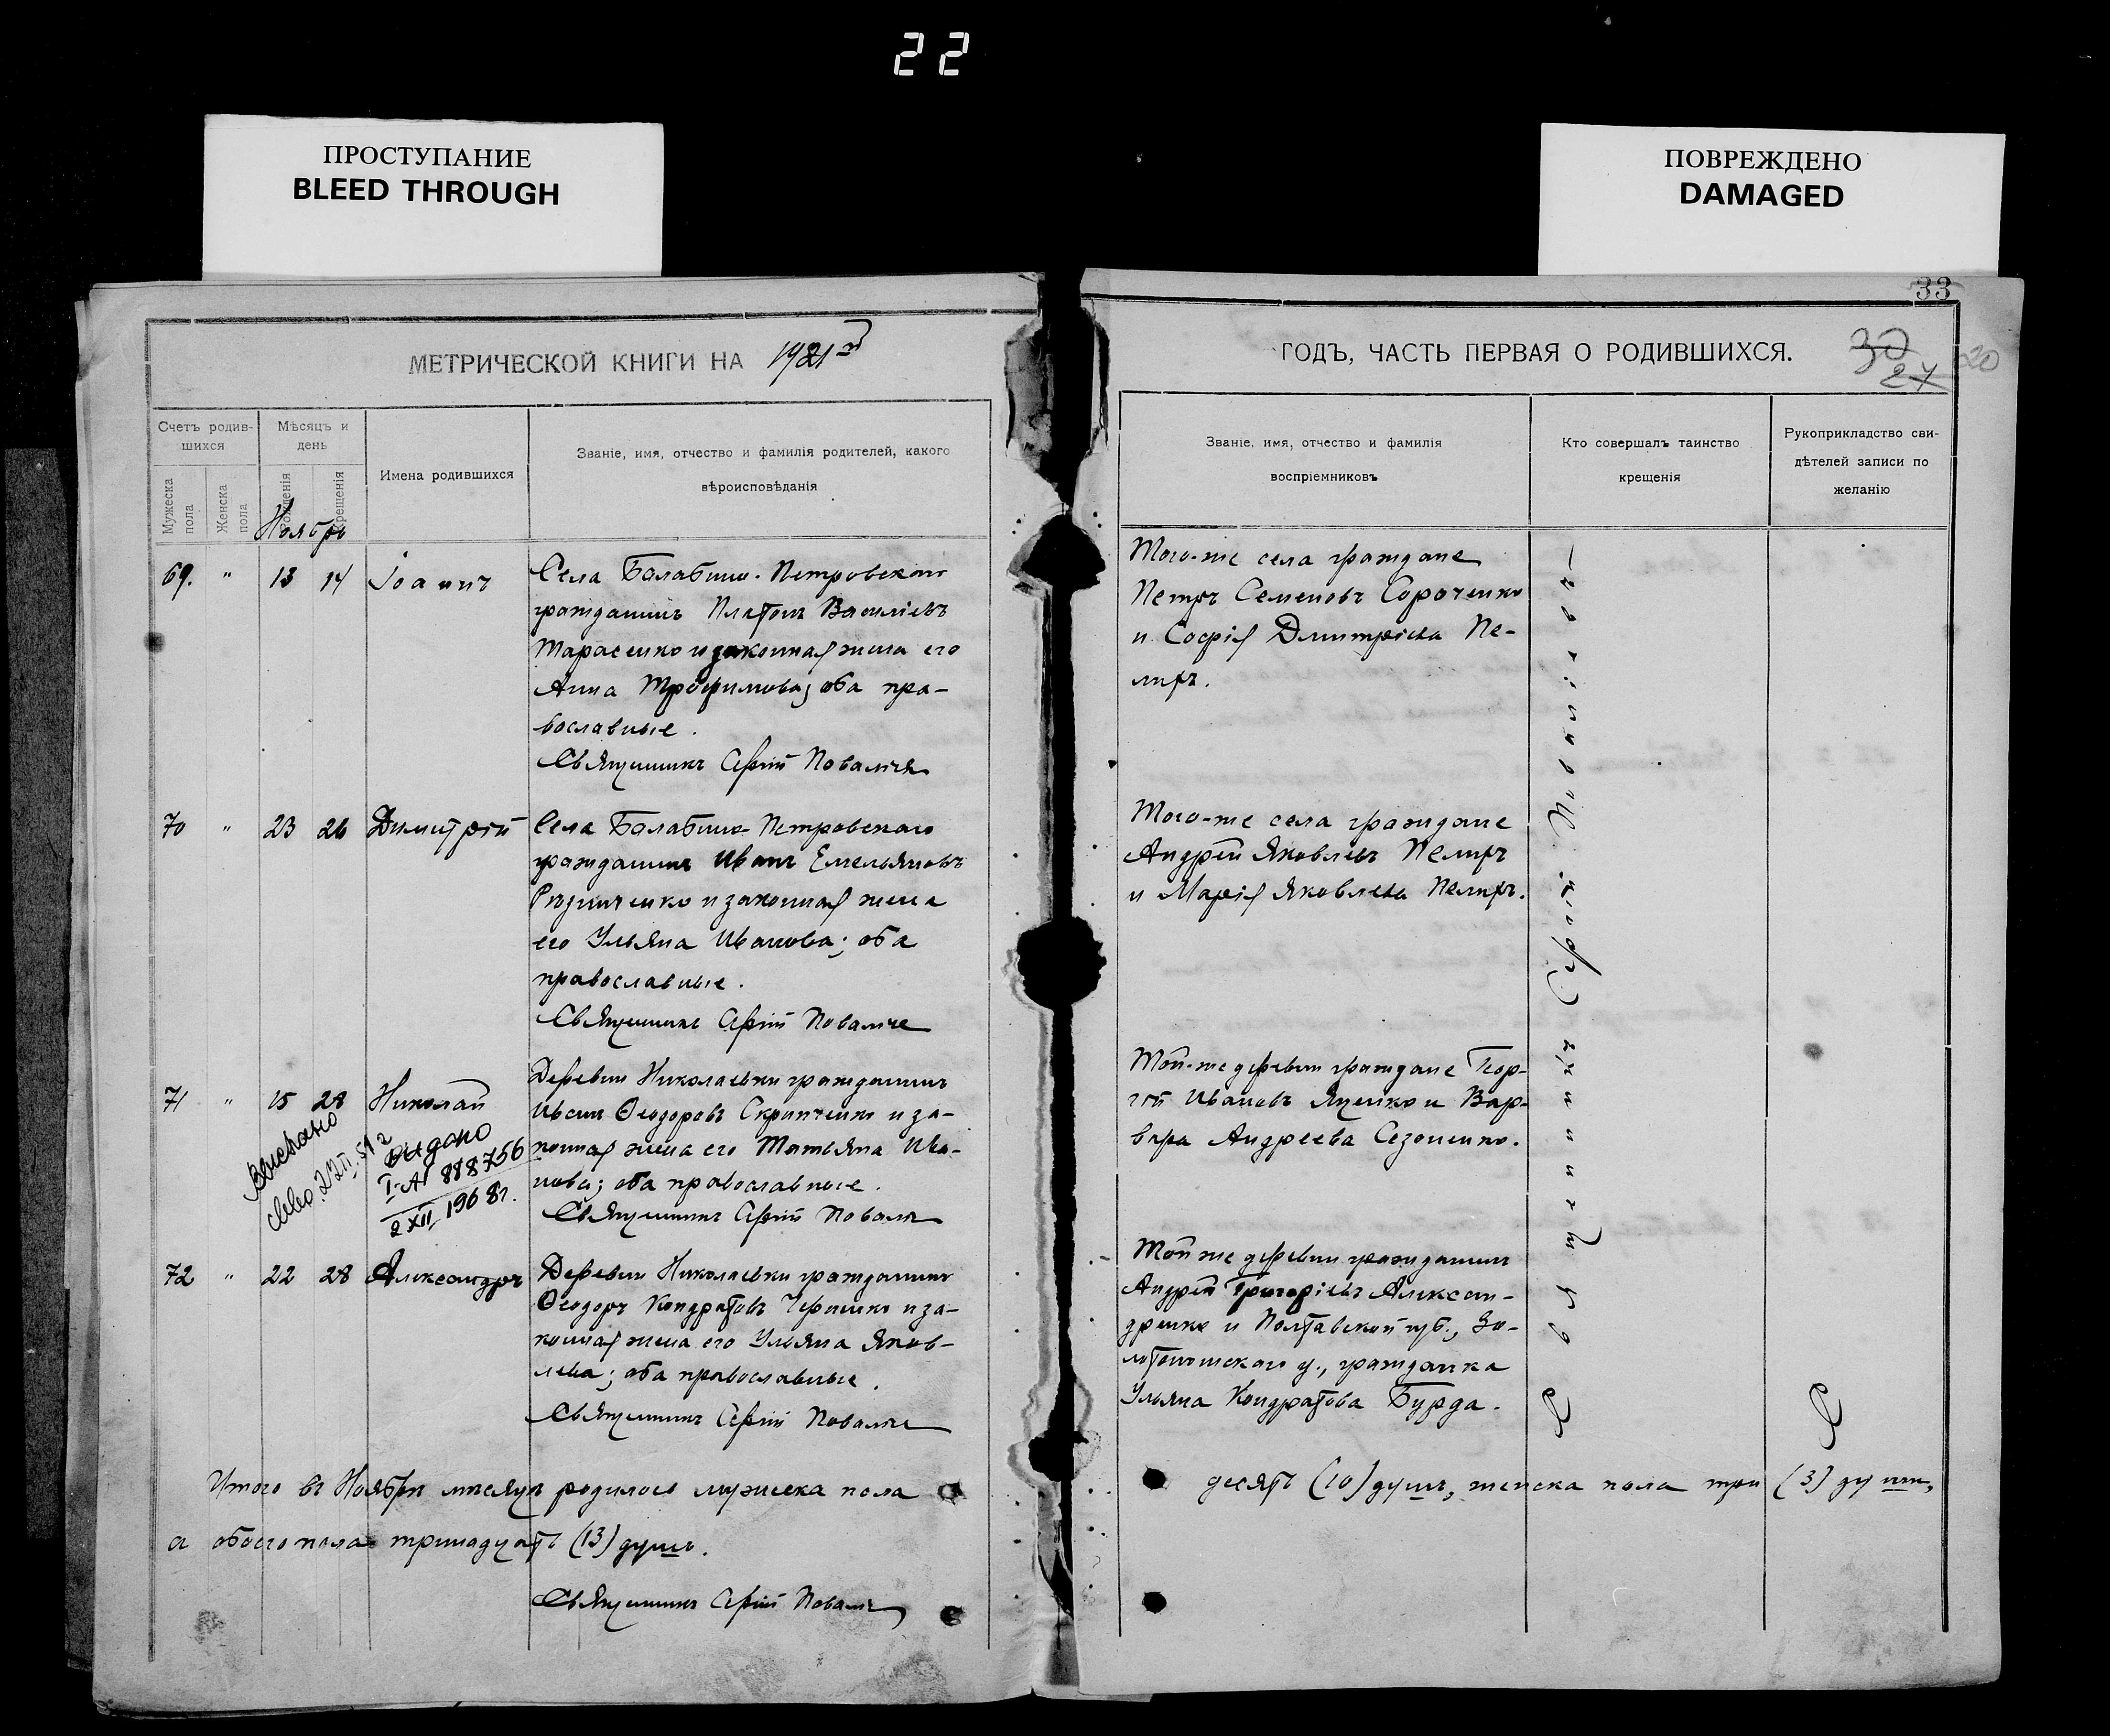 22
ПРОСТУПАНИЕ
BLEED THROUGH
ПОВРЕЖДЕНО
DAMAGED
МЕТРИЧЕСКОЙ КНИГИ НА 1921
Счетъ родив-
шихся
Мѣсяцъ и
день
Имена родившихся
Званіе, имя, отчество и фамилія родителей, какого
вѣроисповѣданія
Мужеска
пола
Женска
пола
Рожденія
Крещенія
Ноябрь
69. " 13 14 Іоаннъ
Села Балабино-Петровскаго
гражданинъ Платонъ Василіевъ
Тарасенко и законная жена его
Анна Трофимова; оба пра-
вославные.
Священникъ Сергій
70 " 23 26 Димитрій
Села Балабино-Петровскаго
гражданинъ Иванъ Емельяновъ
и законная жена
его Ульяна Иванова; оба
православные.
Священникъ Сергій
71 " 15 28 Николай
Деревни Николаевки гражданинъ
Иванъ Ѳеодоровъ Скрипченко и за-
конная жена его Татьяна Ива-
нова; оба православные.
Священникъ Сергій
Выслано
22 II. 51 г
Выдано
I-АГ 888756
2 XII 1968г.
72 " 22 28 Александръ
Деревни Николаевки гражданинъ
Ѳеодоръ Кондратовъ и за-
конная жена его Ульяна Яков-
лева; оба православные.
Священникъ Сергій
Итого въ Ноябрѣ мѣсяцѣ родилось мужеска пола
а обоего пола тринадцать (13) душъ.
Священникъ Сергій
33
ГОДЪ, ЧАСТЬ ПЕРВАЯ О РОДИВШИХСЯ.
30
27
20
Званіе, имя, отчество и фамилія
воспріемниковъ
Кто совершалъ таинство
крещенія
Рукоприкладство сви-
дѣтелей записи по
желанію
Того-же села граждане
Петръ Семеновъ Сороченко
и Софія Дмитріева Пе-
лихъ.
Того-же села граждане
Андрей Яковлевъ Пелихъ
и Марія Яковлева Пелихъ.
Той-же деревни граждане Геор-
гій Ивановъ Яценко и Вар-
вара Андреева Сезоненко.
Той же деревни гражданинъ
Андрей Григоріевъ Алексан-
дренко и Полтавской губ., Зо-
лотоношскаго у., гражданка
Ульяна Кондратова Бурда.
Священникъ Сергій
десять (10) душъ, женска пола три (3) души,